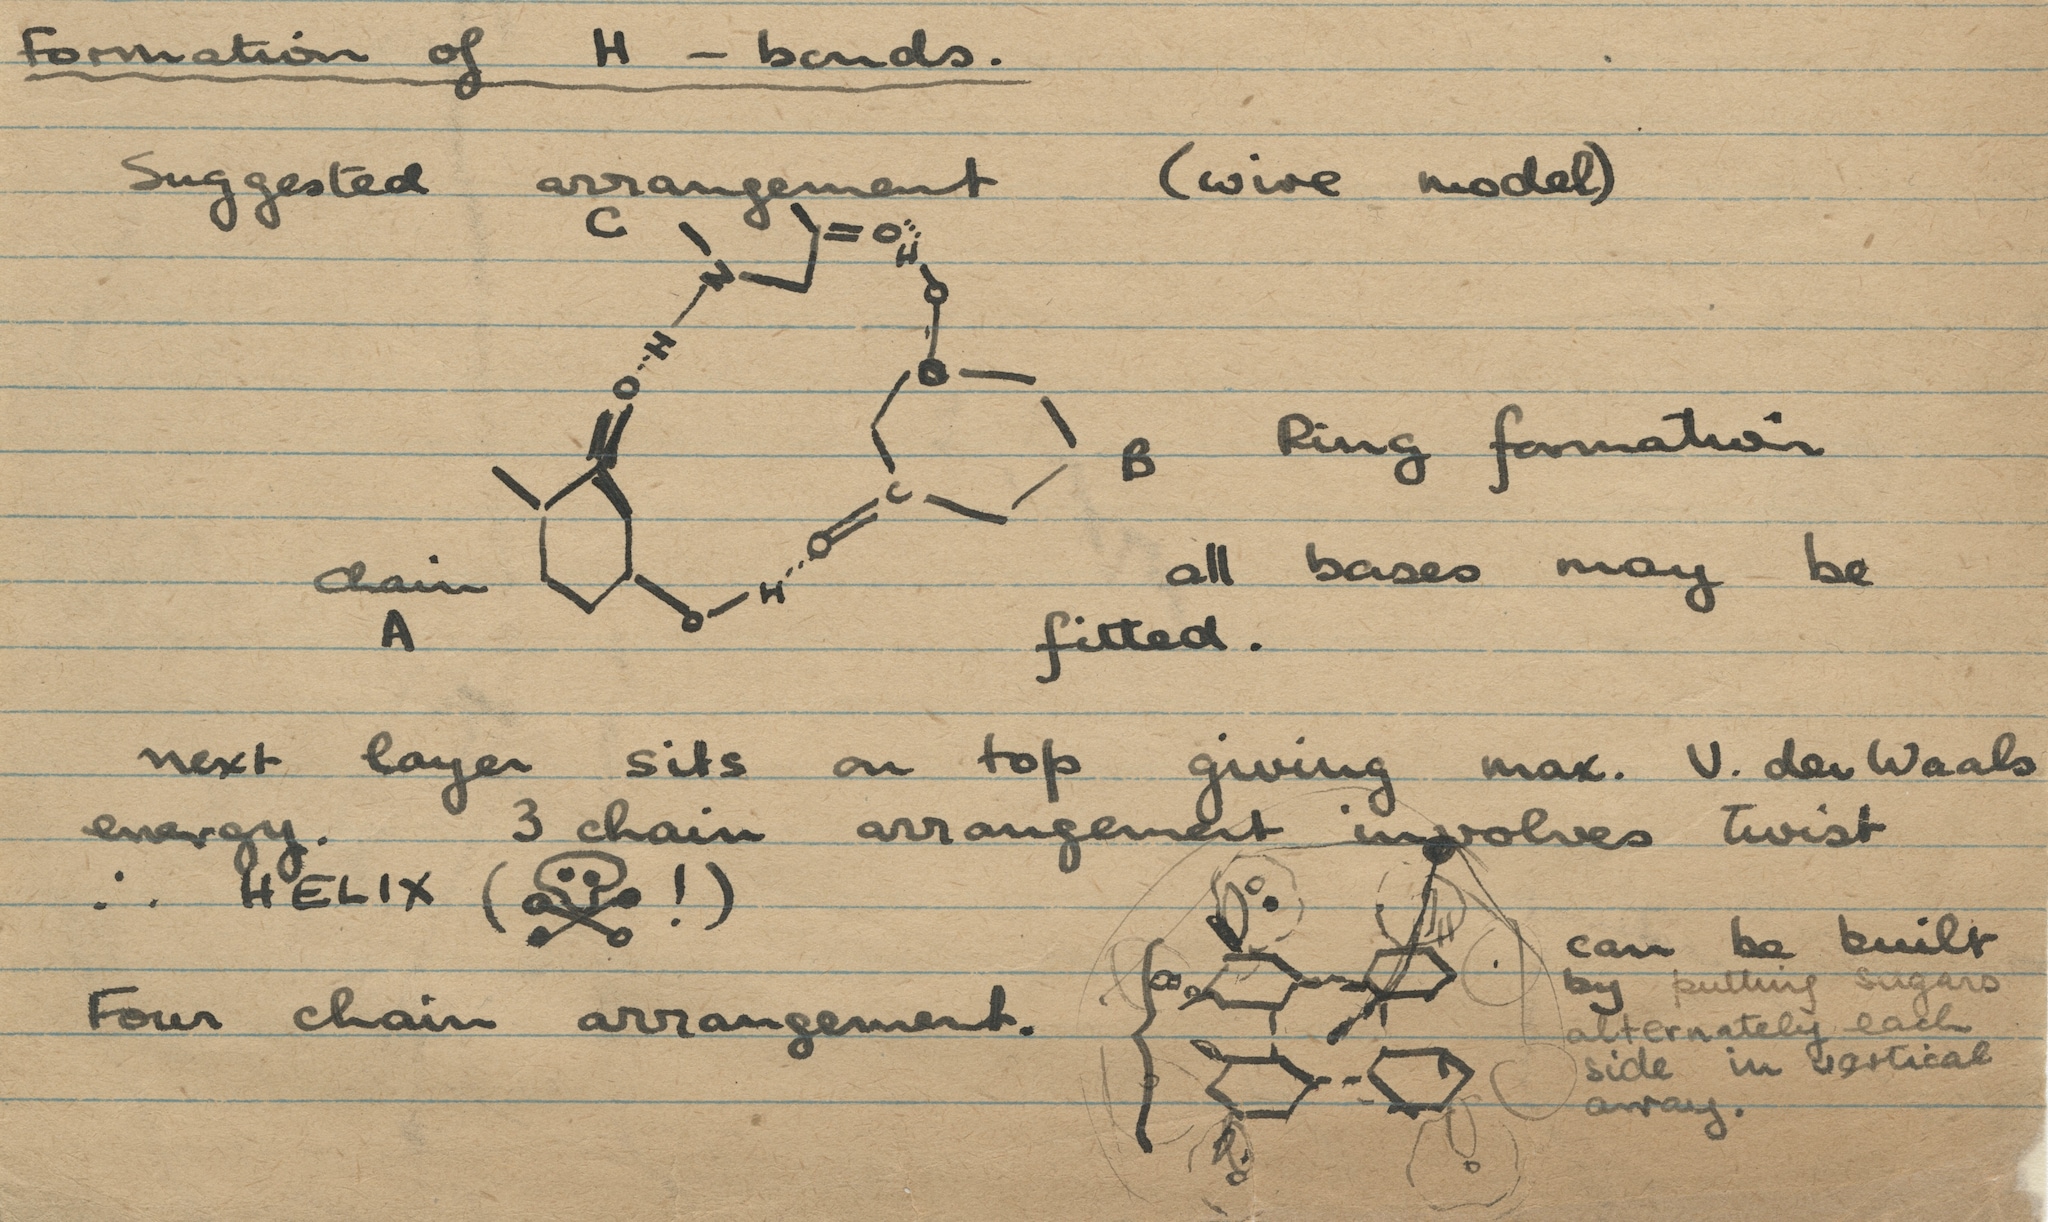 Formation of H - bonds.
Suggested arrangement (wire model)
C
=O
H
N
O
H
O
O
C
B
Ring formation
O
chain
A
O
H
all bases may be
fitted.
next layer sits on top giving max. V. der Waals
energy. 3 chain arrangement involves twist
∴ HELIX ( !)
Four chain arrangement.
can be built
by putting sugars
alternately each
side in vertical
array.